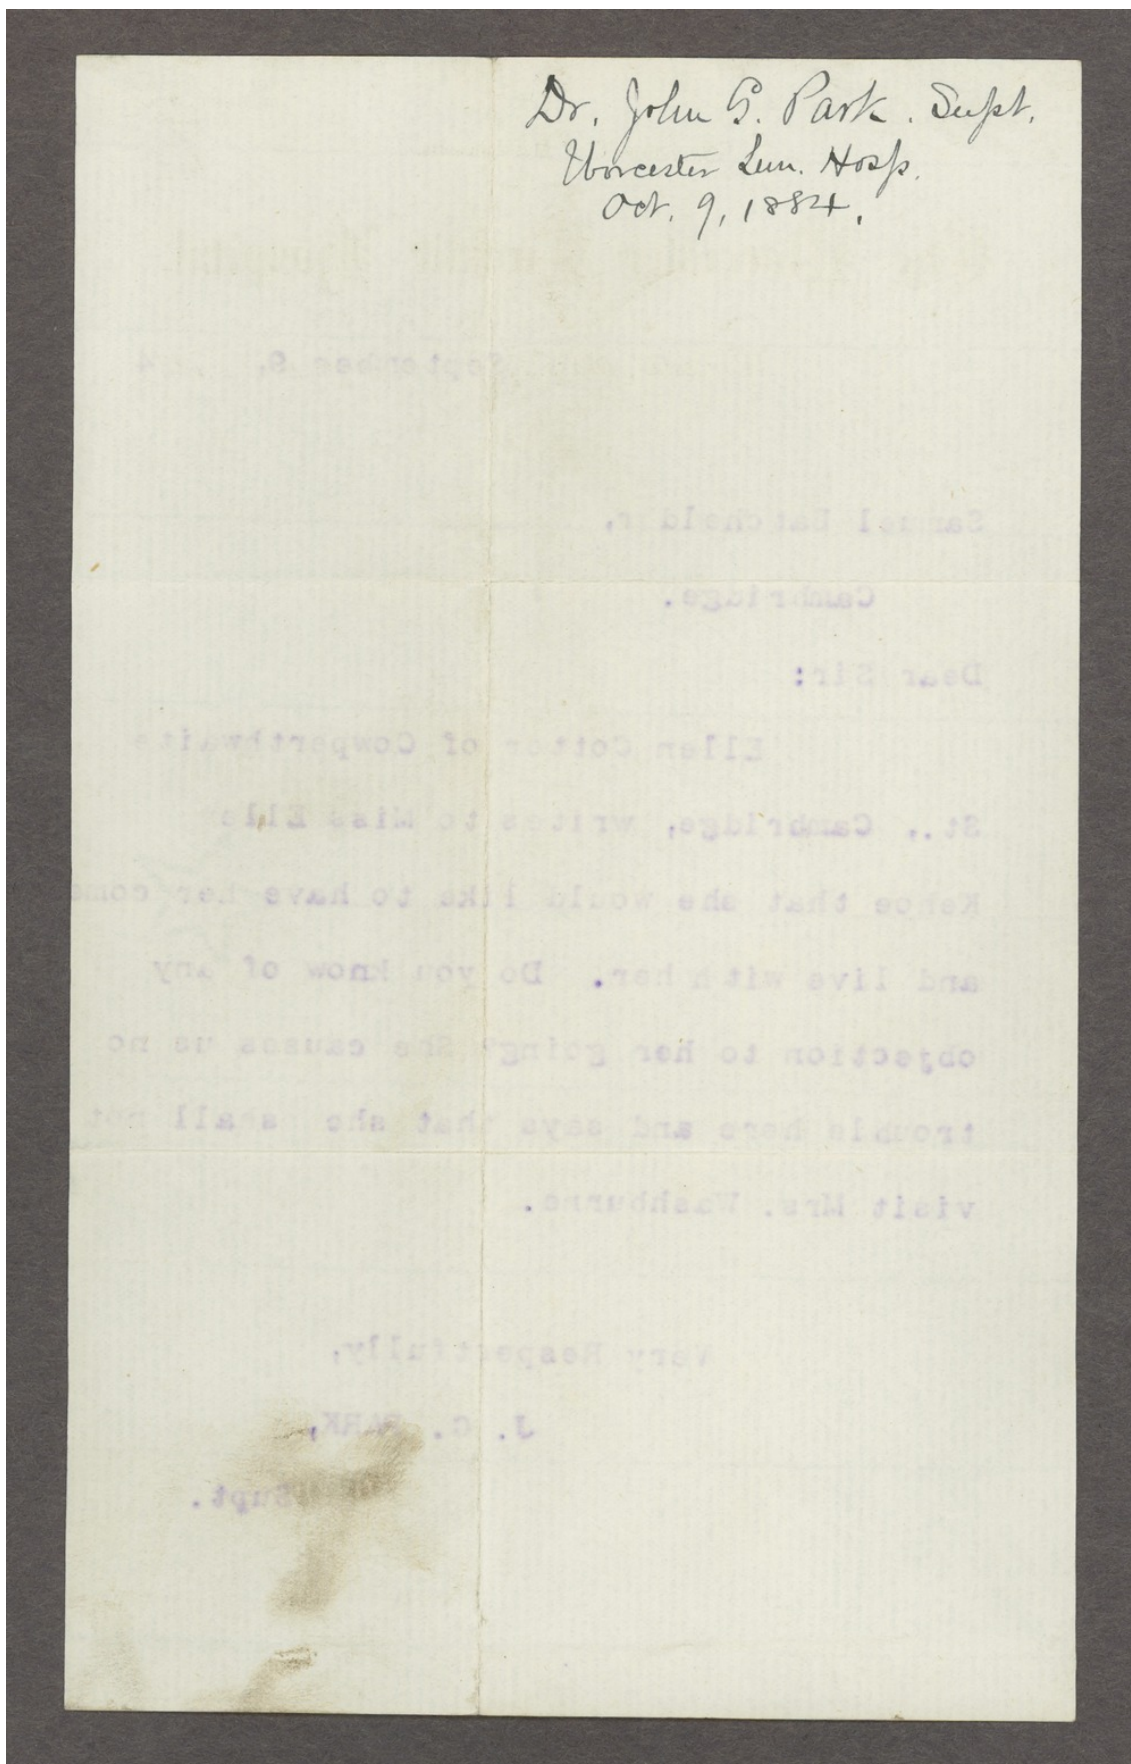 Dr. John G. Park. Supt.
Worcester Lun. Hosp.
Oct. 9, 1884.
September 9, 4
Samuel Batchelder,
Cambridge.
Dear Sir:
Ellen Cotter of Cowperthwaite
St., Cambridge, writes to Miss Ellen
Kehoe that she would like to have her come
and live with her. Do you know of any
objection to her going? She causes us no
trouble here and says that she shall not
visit Mrs. Washburne.
Very Respectfully,
J. G. PARK,
Supt.